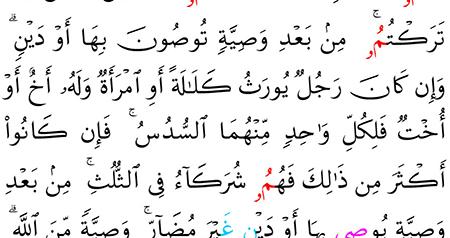 تَرَكْتُمُۥ ۚ مِنۢ بَعْدِ وَصِيَّةٍ تُوصُونَ بِهَا أَوْ دَيْنٍ ۗ
وَإِن كَانَ رَجُلٌ يُورَثُ كَلَـٰلَةً أَوِ ٱمْرَأَةٌ وَلَهُۥ أَخٌ أَوْ
أُخْتٌ فَلِكُلِّ وَٰحِدٍ مِّنْهُمَا ٱلسُّدُسُ ۚ فَإِن كَانُوٓا۟
أَكْثَرَ مِن ذَٰلِكَ فَهُمُۥ شُرَكَآءُ فِى ٱلثُّلُثِ ۚ مِنۢ بَعْدِ
وَصِيَّةٍ يُوصِى بِهَآ أَوْ دَيْنٍ غَيْرَ مُضَآرٍّ ۚ وَصِيَّةً مِّنَ ٱللَّهِ ۗ